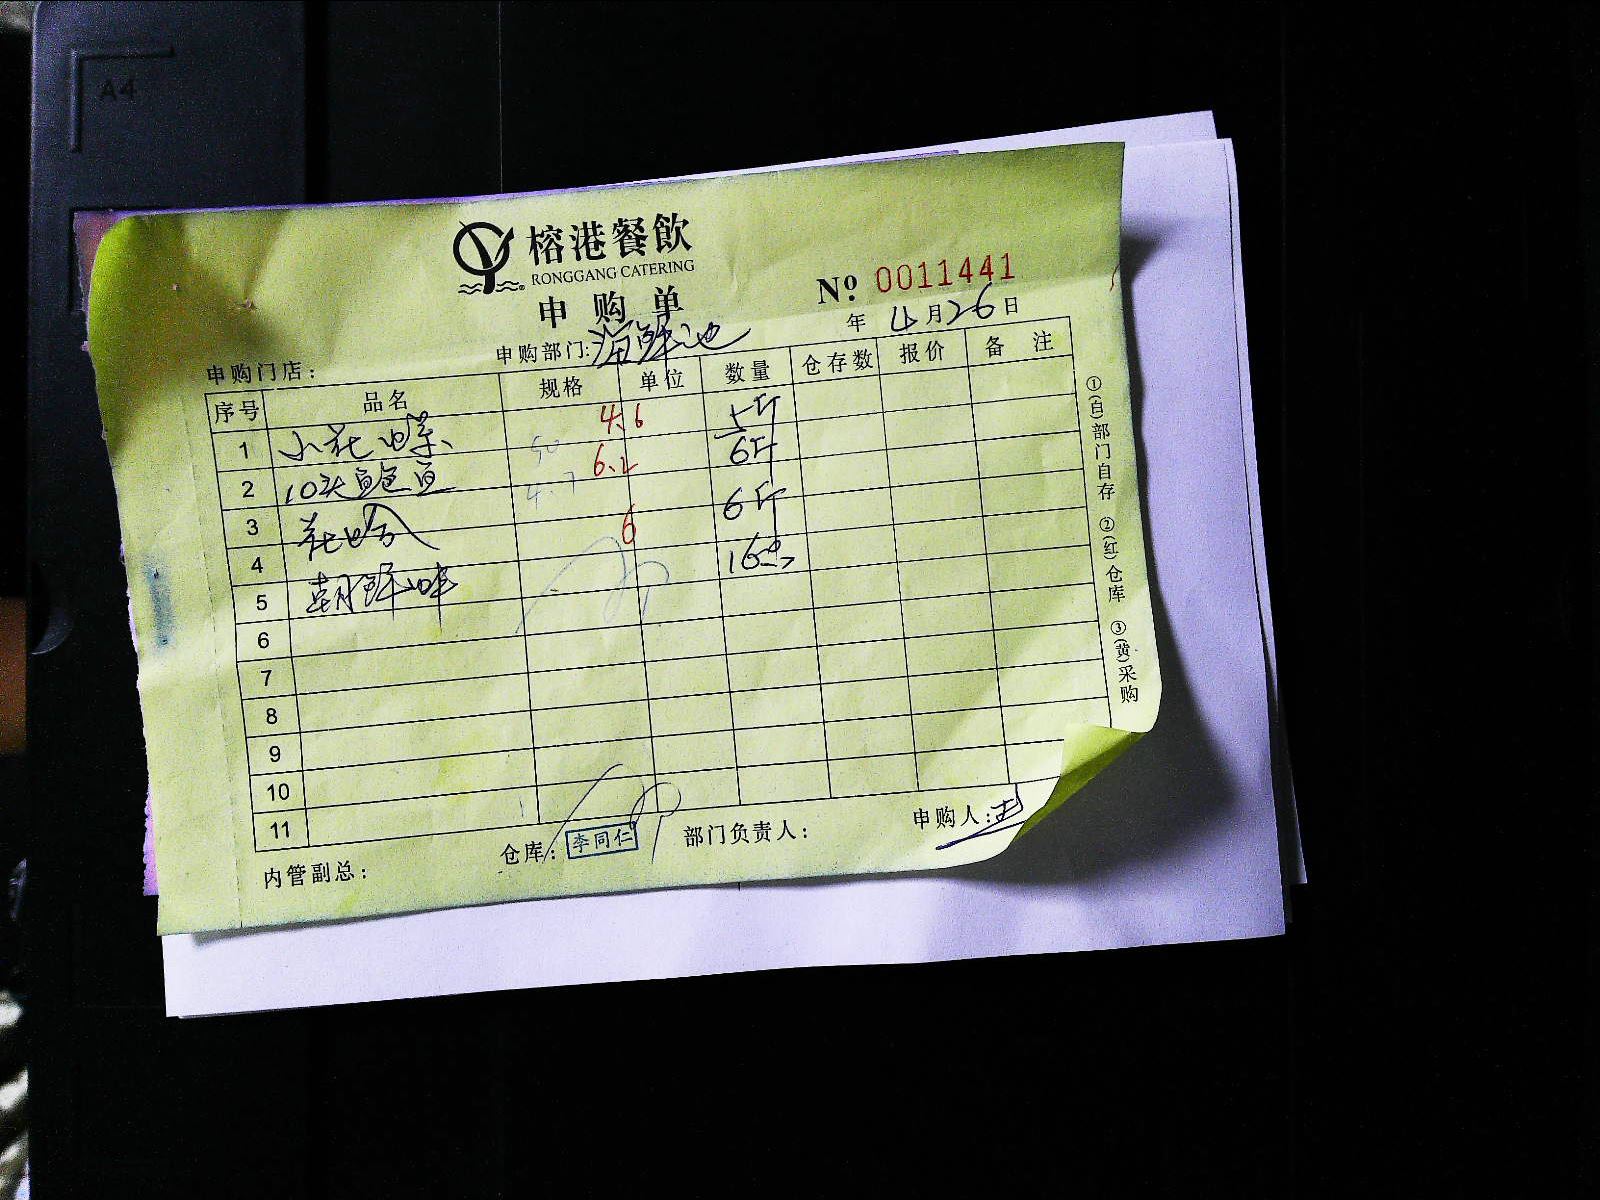 A4
榕港餐飲
RONGGANG CATERING
申购单
№ 0011441
申购门店：
申购部门: 海鲜池
年 4月26日
序号 品名 规格 单位 数量 仓存数 报价 备注
1 小花螺 4.6 5斤
2 10头鲍鱼 6.2 6斤
3 花蛤 6 6斤
4 16
5
6
7
8
9
10
11
仓库： 李同仁 部门负责人： 申购人：
内管副总：
①(白)部门自存 ②(红)仓库 ③(黄)采购